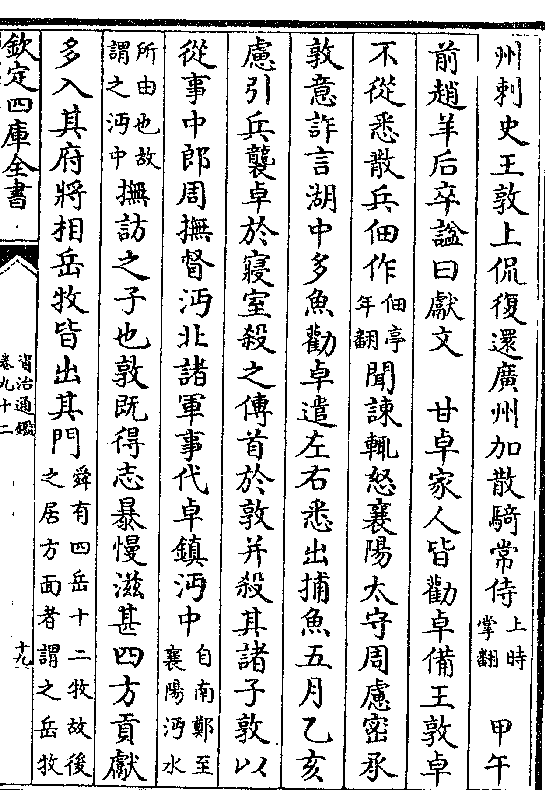 州刺史王敦上侃復還廣州加散騎常侍上時掌翻 甲午
前趙羊后卒諡曰獻文 甘卓家人皆勸卓備王敦卓
不從悉散兵佃作佃亭年翻聞諫輒怒襄陽太守周慮密承
敦意詐言湖中多魚勸卓遣左右悉出捕魚五月乙亥
慮引兵襲卓於寢室殺之傳首於敦并殺其諸子敦以
從事中郎周撫督沔北諸軍事代卓鎮沔中自南鄭至襄陽沔水
所由也故謂之沔中撫訪之子也敦既得志暴慢滋甚四方貢獻
多入其府將相岳牧皆出其門舜有四岳十二牧故後之居方面者謂之岳牧
欽定四庫全書
資治通鑑
卷九十二
十九